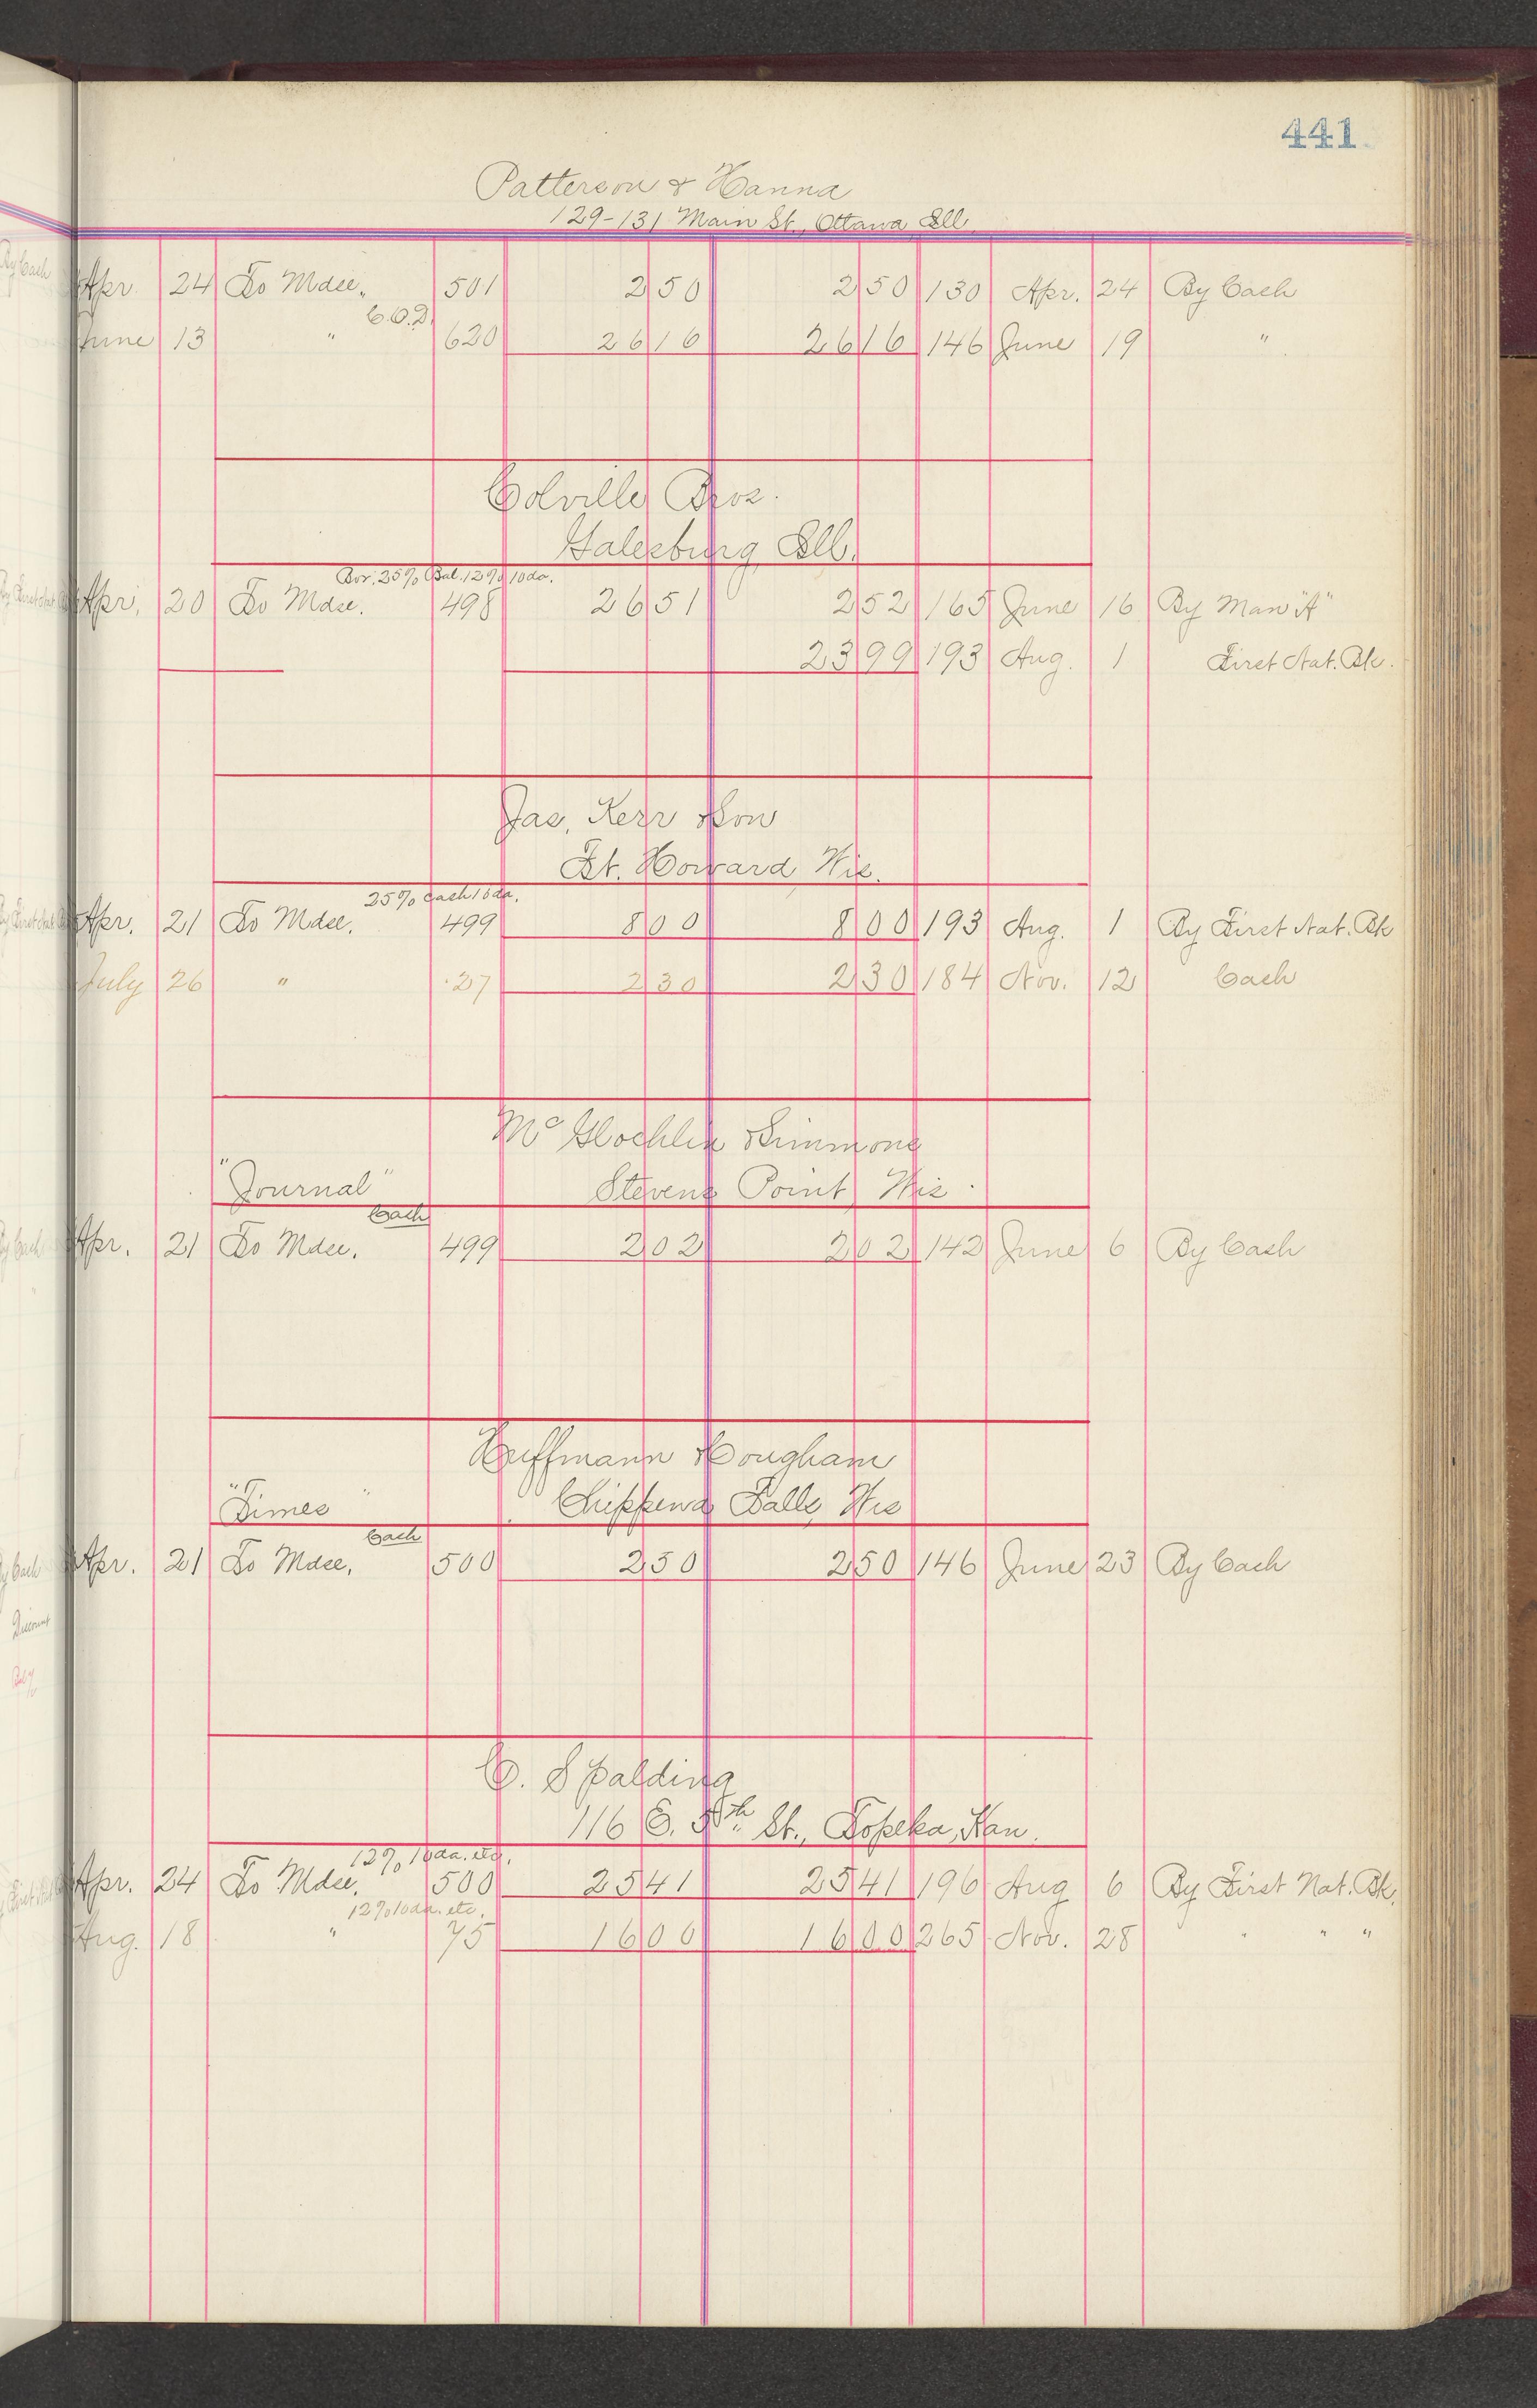 441
Patterson & Hanna
129-131 Main St., Ottawa Ill
Apr. 24 To Mdse. 501 2 50 2 50 130 Apr. 24 By Cash
C.O.D.
June 13 " 620 26 16 26 16 146 June 19 "
Colville Bros.
Galesburg, Ill.
Bor. 25% Bal. 12% 10 da.
Apr. 20 To Mdse. 498 26 51 2 52 165 June 16 By Man "A"
23 99 193 Aug. 1 First Nat. Bk.
Jas. Kerr & Son
Ft. Howard Wis.
25% Cash 10 da.
Apr. 21 To Mdse. 499 8 00 8 00 193 Aug. 1 By First Nat. Bk
July 26 " 27 2 30 2 30 184 Nov. 12 Cash
Mc Glochlin & Simmons
"Journal" Stevens Point, Wis.
Cash
Apr. 21 To Mdse. 499 2 02 2 02 142 June 6 By Cash
Huffmann & Hougham
"Times" Chippewa Falls, Wis
Cash
Apr. 21 To Mdse. 500 2 50 2 50 146 June 23 By Cash
C. Spalding
116 E. 5th St., Topeka, Kan.
12% 10 da. etc.
Apr. 24 To Mdse. 500 25 41 25 41 196 Aug 6 By First Nat. Bk.
12% 10 da. etc.
Aug. 18 " 75 16 00 16 00 265 Nov. 28 " " "